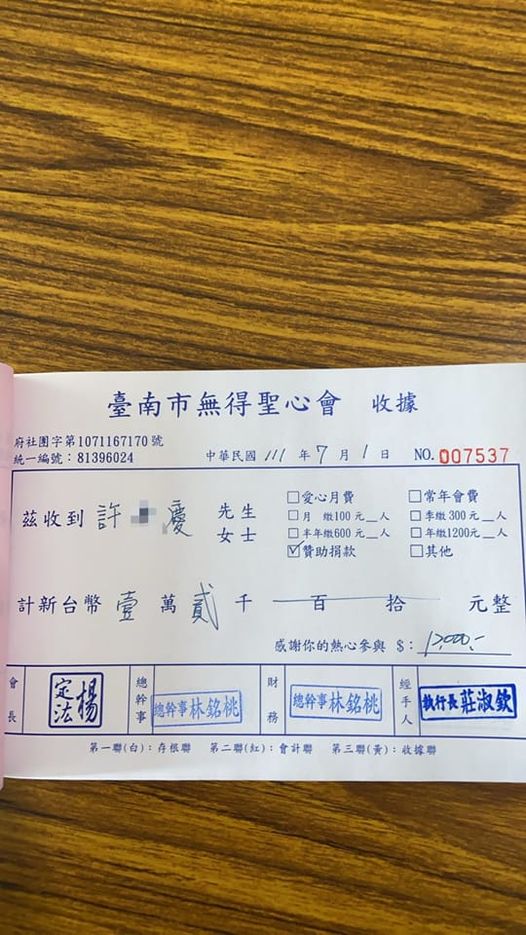 臺南市無得聖心會 收據
府社團字第1071167170號
統一編號：81396024
中華民國 111 年 7 月 1 日 NO. 007537
茲收到 許 慶 先生 女士
□愛心月費 □常年會費
□月 繳100元__人 □季繳300元__人
□半年繳600元__人 □年繳1200元__人
☑贊助捐款 □其他
計新台幣 壹 萬 貳 千 百 拾 元整
感謝你的熱心參與 $：12,000.-
會長 楊定法 總幹事 總幹事林銘桃 財務 總幹事林銘桃 經手人 執行長莊淑欽
第一聯(白)：存根聯 第二聯(紅)：會計聯 第三聯(黃)：收據聯